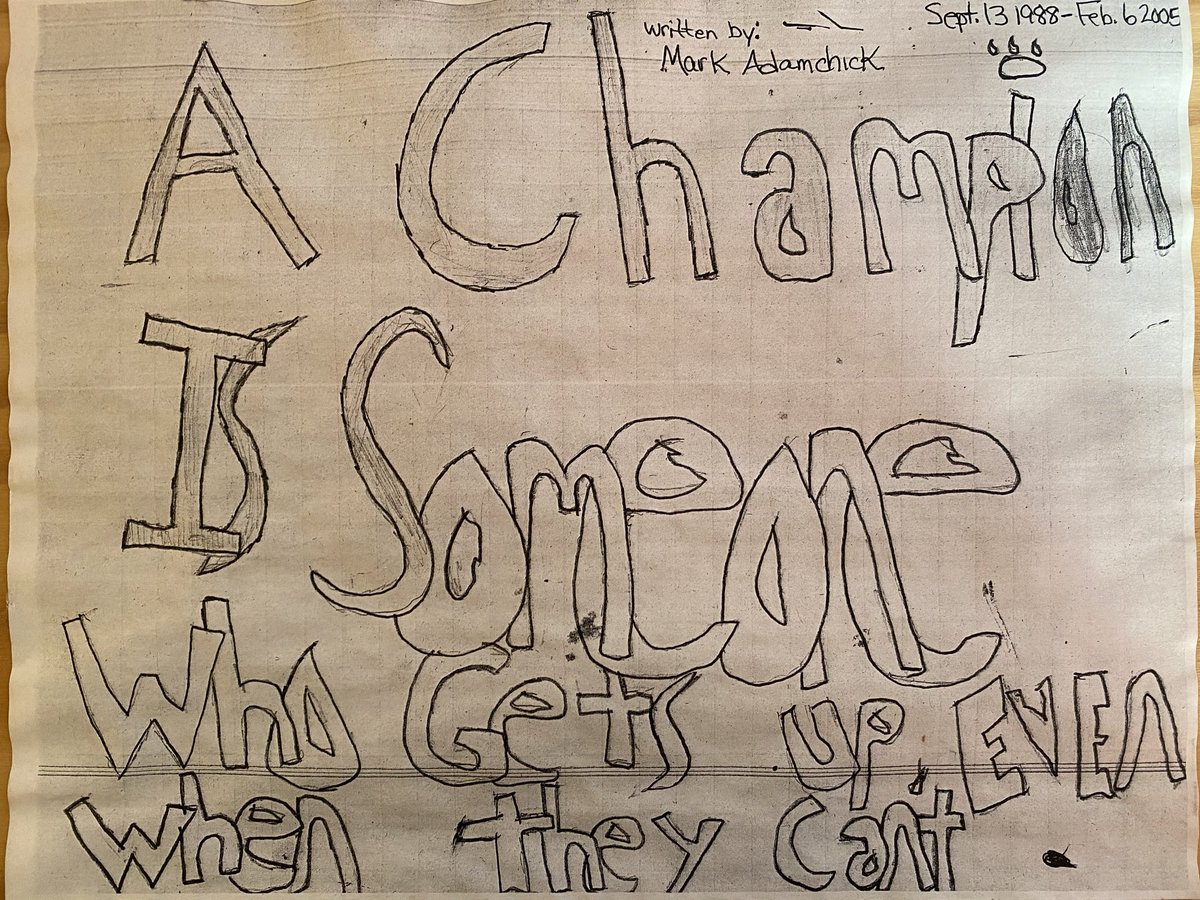 Sept. 13 1988-Feb. 6 2005
written by:
Mark Adamchick
A Champion
Is Someone
Who Gets up EVEn
when they cant